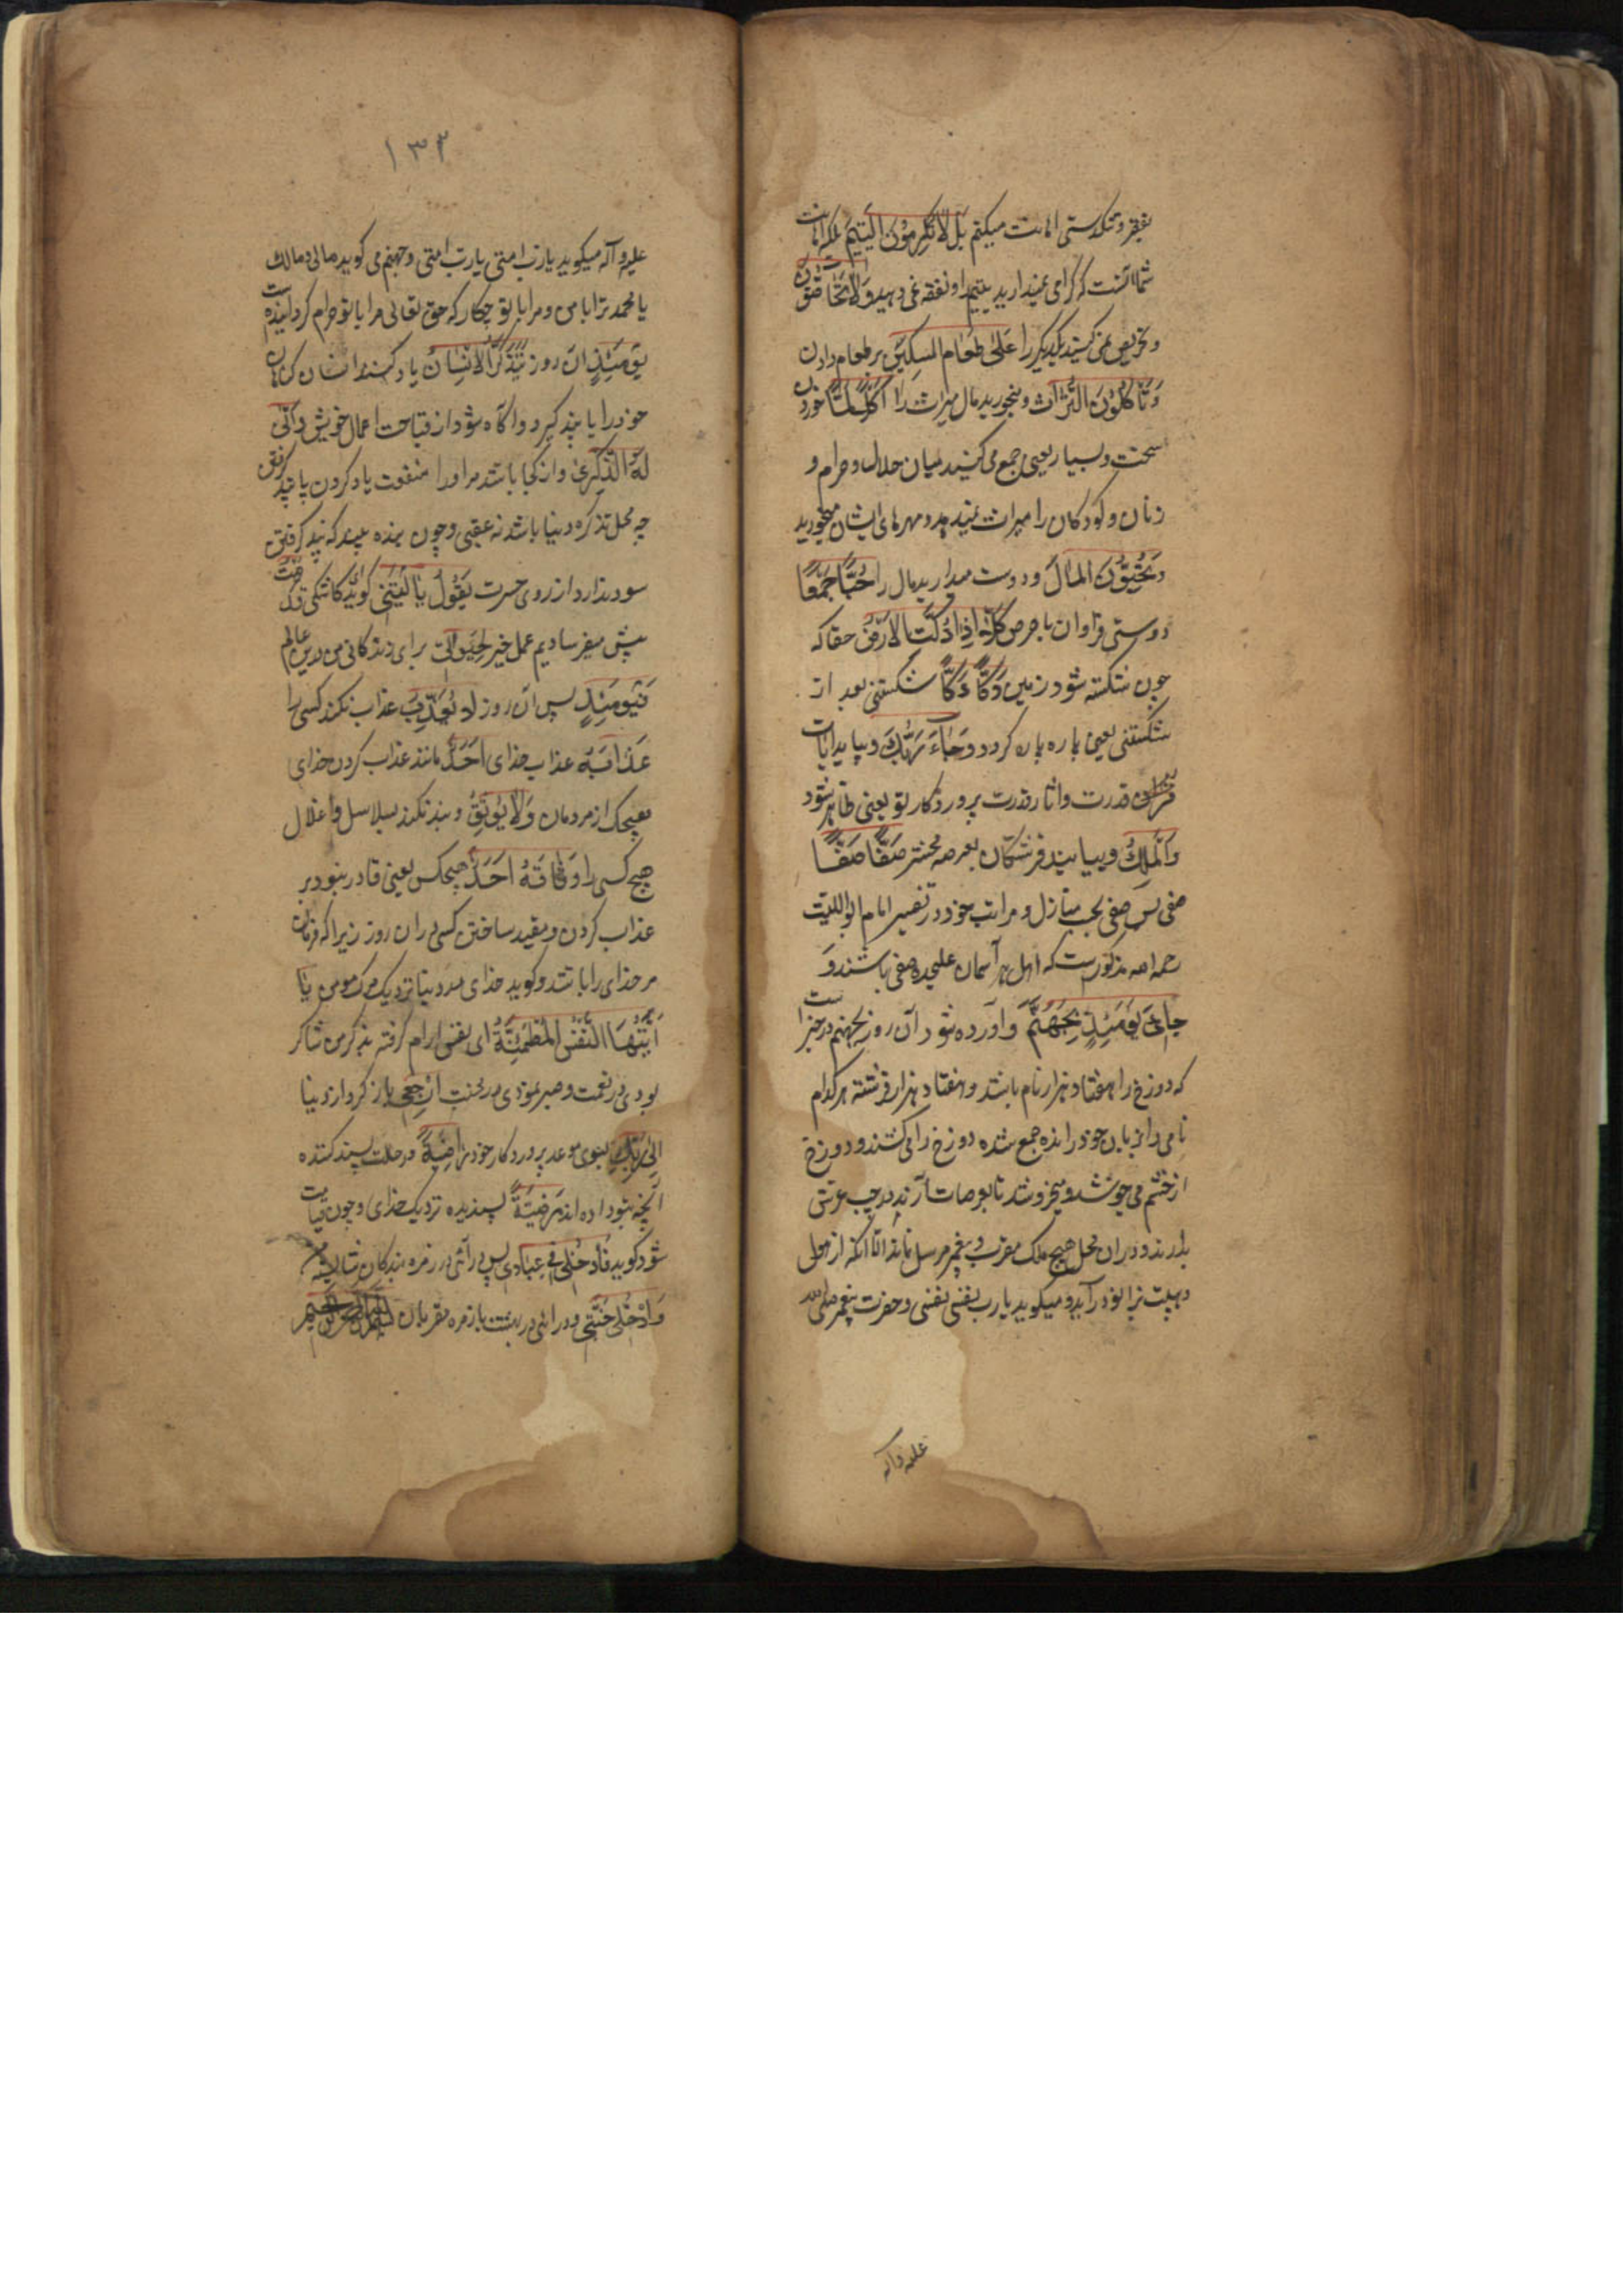 بفقر و تنکدستی اهانت میکنم بَل لَا تُکرِمُونَ الیَتِیمَ بلکه اهانت
شما آنست که کرامی نمیدارید یتیم را و نفقه نمی دهید وَلَا تَحَاضُّونَ
و تحریص نمی کنید یکدیکر را عَلیٰ طَعَامِ المِسکِینِ بر طعام دادن
وَتَاکُلُونَ التُّرَاثَ و میخورید مال میراث را اَکلًا لَمًّا خوردن
سخت و بسیار یعنی جمع می کنید میان حلال و حرام و
زنان و کودکان را میراث نمیدهید و مهرهای ایشان میخورید
وَتُحِبُّونَ المَالَ و دوست میدارید مال را حُبًّا جَمًّا
دوستی فراوان با حرص کَلَّا اِذَا دُکَّتِ الاَرضُ حقا که
چون شکسته شود زمین دَکًّا دَکًّا شکستنی بعد از
شکستنی یعنی پاره پاره کردد وَجَاءَ رَبُّکَ و بیاید آیات
قدرت و اثار قدرت پروردکار تو یعنی ظاهر شود
وَالمَلَکُ و بیایند فرشتکان بعرصه محشر صَفًّا صَفًّا
صفی پس صفی بحسب منازل و مراتب خود در تفسیر امام ابواللیث
رحمه الله مذکورست که اهل هر آسمان علیحده صفی باشند وَ
جِایءَ یَومَئِذٍ بِجَهَنَّمَ و آورده شود آن روز بجهنم در خبر است
که دوزخ را هفتاد هزار زمام باشد و هفتاد هزار فرشته هر کدام
جمع شده دوزخ را می کشند و دوزخ
از خشم می جوشد و میخروشد تا بعرصات آرند بر چپ عرش
بدارند و در ان محل هیچ ملک مقرب و پیغمبر مرسل نماند الا آنکه از هول
و هیبت بزانو درآید و میکوید یا رب نفسی نفسی و حضرت پیغمبر صلی الله
علیه وآله
۱۳۳
علیه و آله میکوید یا رب امتی یا رب امتی و جهنم می کوید مالی و مالک
یا محمد ترا با من و مرا با تو چکار که حق تعالی مرا بر تو حرام کردانیده است
یَومَئِذٍ ان روز یَتَذَکَّرُ الاِنسَانُ یاد کند انسان کناهان
خود را یا پند کیرد و آکاه شود از قباحت اعمال خویش وَاَنّٰی
لَهُ الذِّکرٰی و از کجا باشد مر او را منفعت یاد کردن یا پند کرفتن
چه محل تذکره دنیا باشد نه عقبی و چون بنده بیند که پند کرفتن
سود ندارد از روی حسرت یَقُولُ یَا لَیتَنِی کوید کاشکی قَدَّمتُ
پیش میفرستادیم عمل خیر لِحَیَوٰتِی برای زندکانی من درین عالم
فَیَومَئِذٍ پس آن روز لَا یُعَذِّبُ عذاب نکند کسی را
عَذَابَهُ عذاب خدای اَحَدٌ مانند عذاب کردن خدای
هیچیک از مردمان وَلَا یُوثِقُ و بند نکند بسلاسل و اغلال
هیچ کسی را وَثَاقَهُ اَحَدٌ هیچکس یعنی قادر نبود بر
عذاب کردن و مقید ساختن کسی در ان روز زیرا که فرمان
مر خدای را باشد و کوید خدای در دنیا نزدیک مرک مومن یَا
اَیَّتُهَا النَّفسُ المُطمَئِنَّةُ ای نفس ارام کرفته بذکر من شاکر
بودی در نعمت و صبر نمودی در محنت اِرجِعِی باز کرد از دنیا
اِلیٰ رَبِّکِ بسوی موعد پروردکار خود رَاضِیَةً در حالت پسند کننده
آنچه بتو داده اند مَرضِیَّةً پسندیده نزدیک خدای و چون قیامت
شود کوید فَادخُلِی فِی عِبَادِی پس درآئی در زمره بندکان شایسته من
وَادخُلِی جَنَّتِی و درائی در بهشت با زمره مقربان